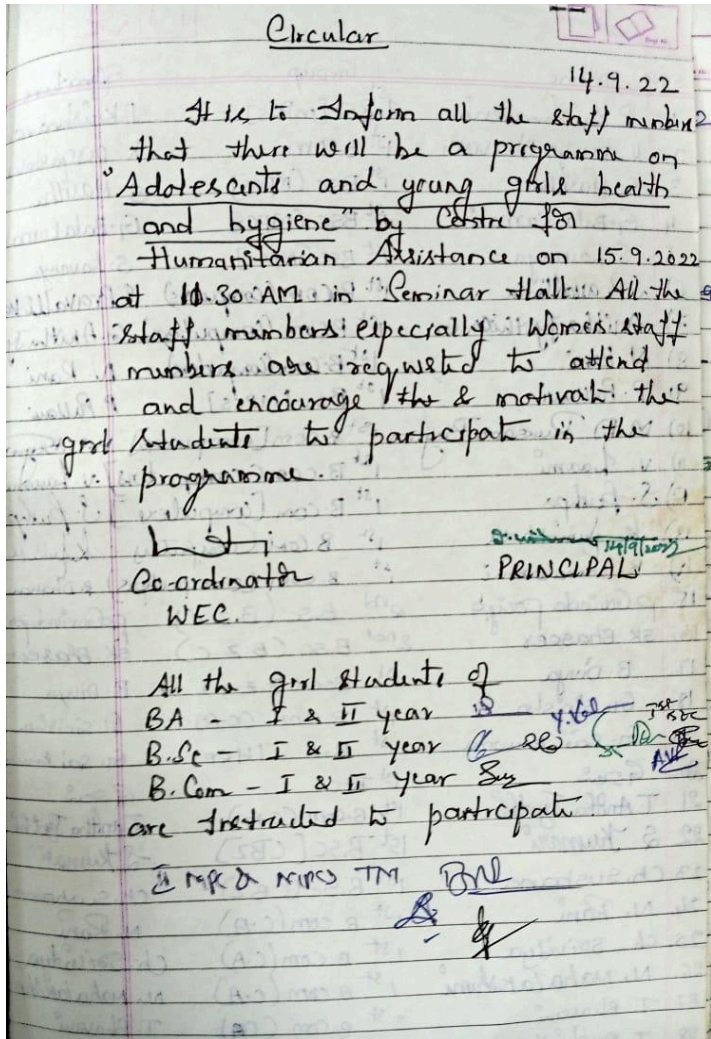 Circular
14.9.22
It is to Inform all the staff members
that there will be a programme on
"Adolescents and young girls health
and hygiene" by Centre for
Humanitarian Assistance on 15.9.2022
at 10.30 AM in Seminar Hall. All the
staff members especially Women staff
members are requested to attend
and encourage the & motivate the
girl students to participate in the
programme.
14/9/2022
Co-ordinator PRINCIPAL
WEC.
All the girl students of
BA - I & II year
B.Sc - I & II year
B.Com - I & II year
are Instructed to participate